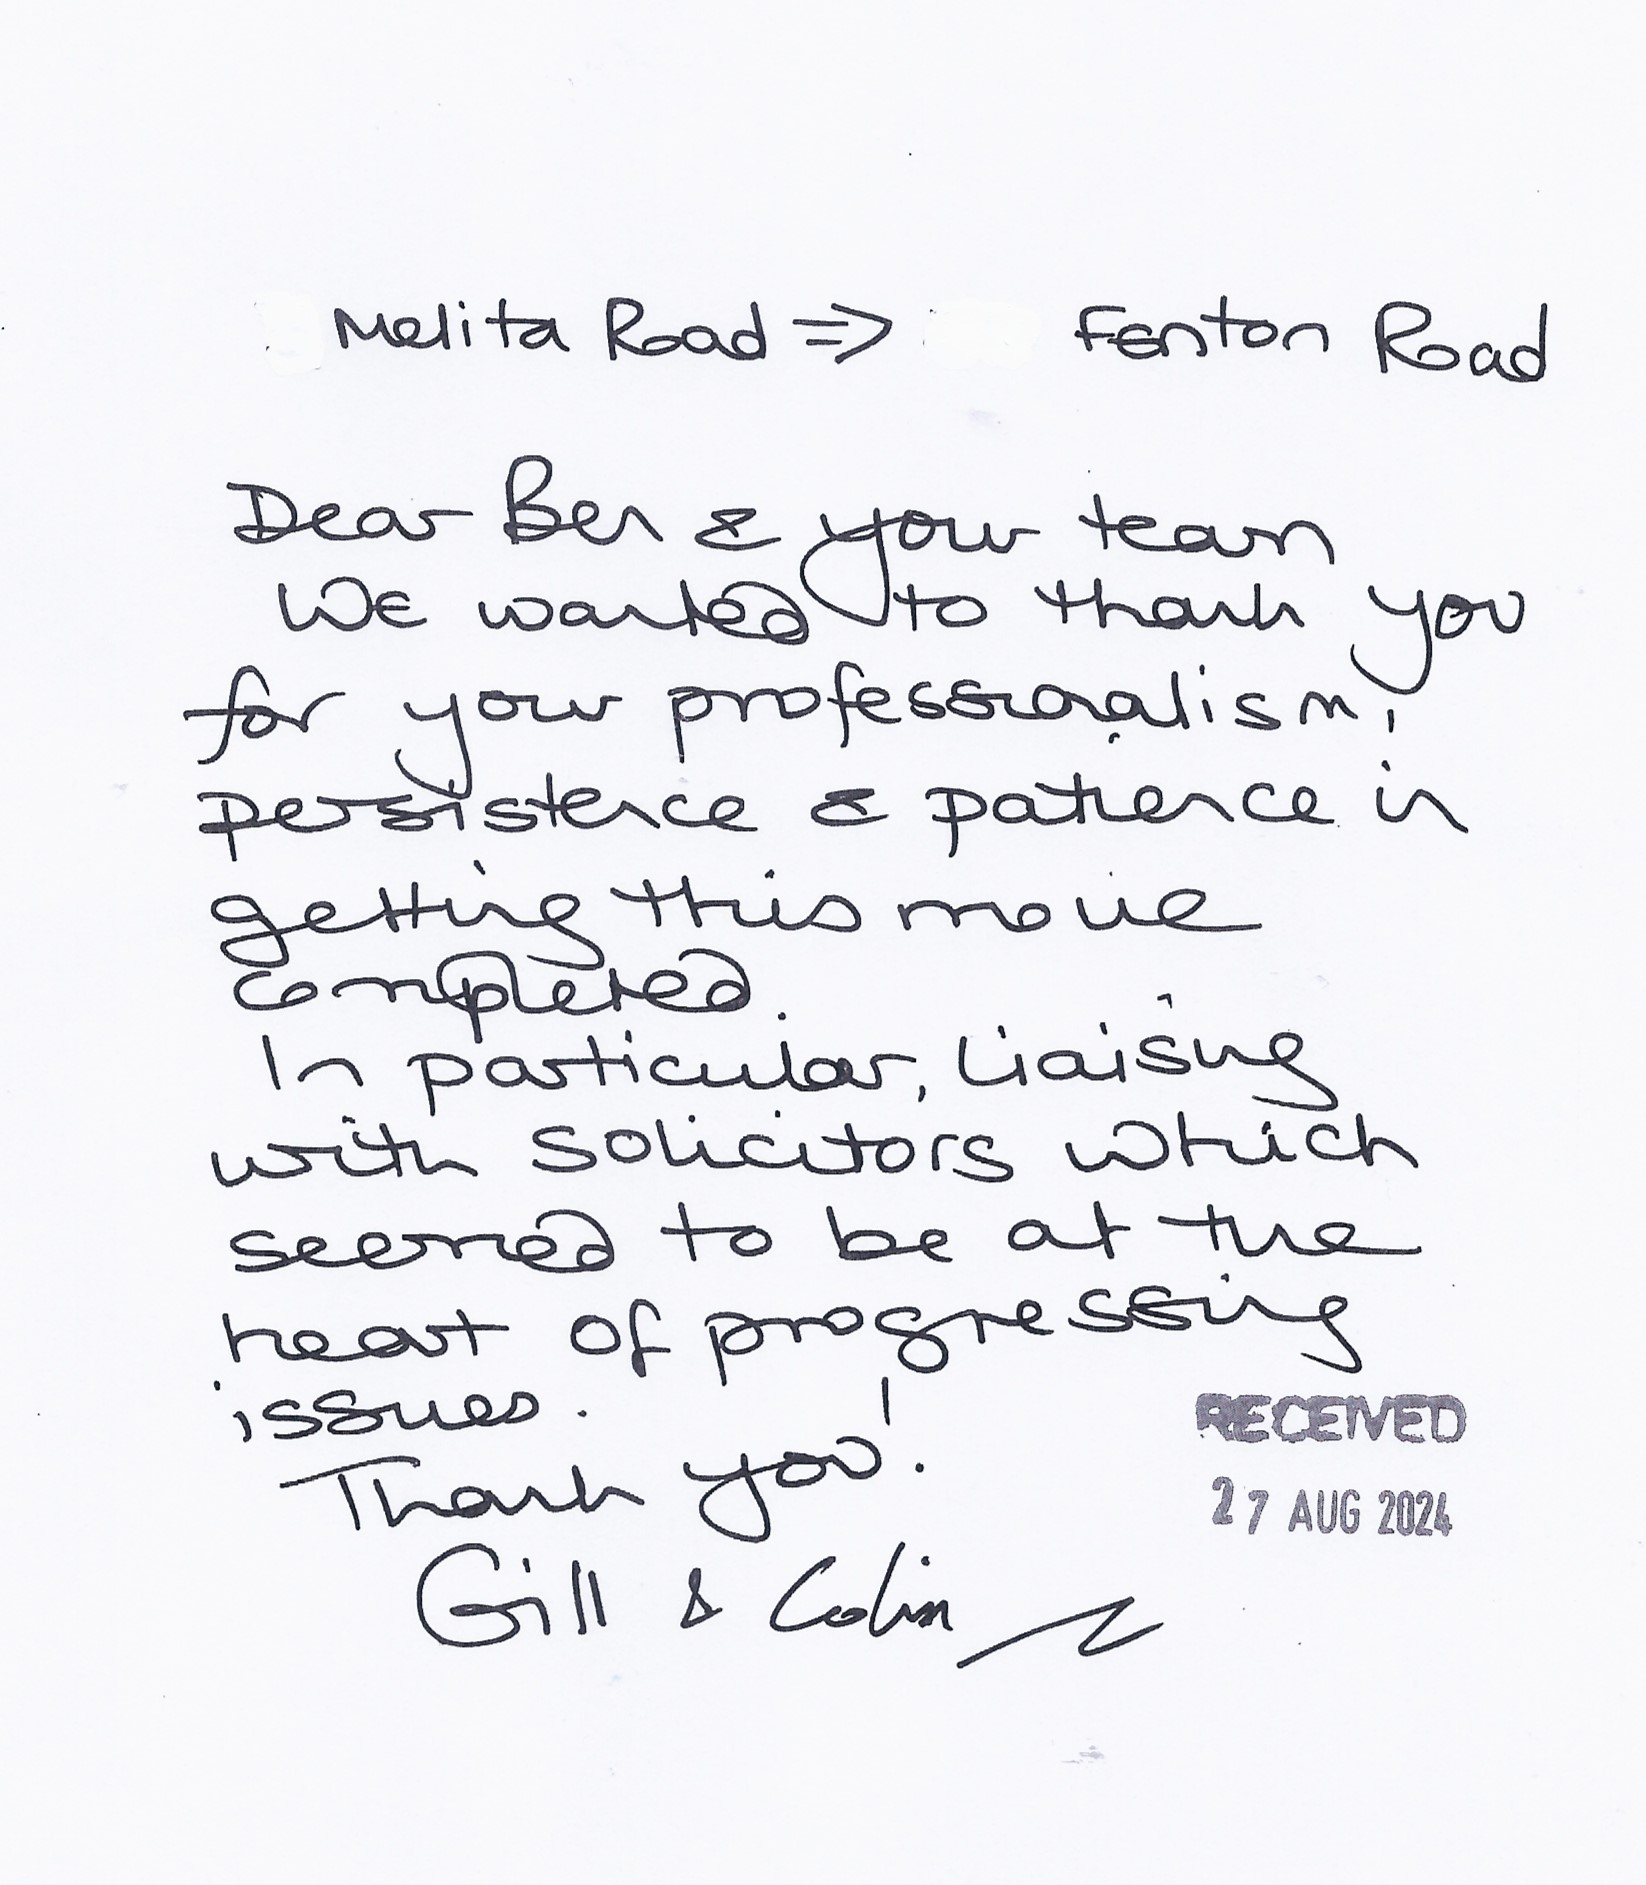 Melita Road => Fenton Road
Dear Ben & your team
We wanted to thank you
for your professionalism,
persistence & patience in
getting this move
completed.
In particular, liaising
with solicitors which
seemed to be at the
heart of progressing
issues.
Thank you!
Gill & Colin
RECEIVED
27 AUG 2024